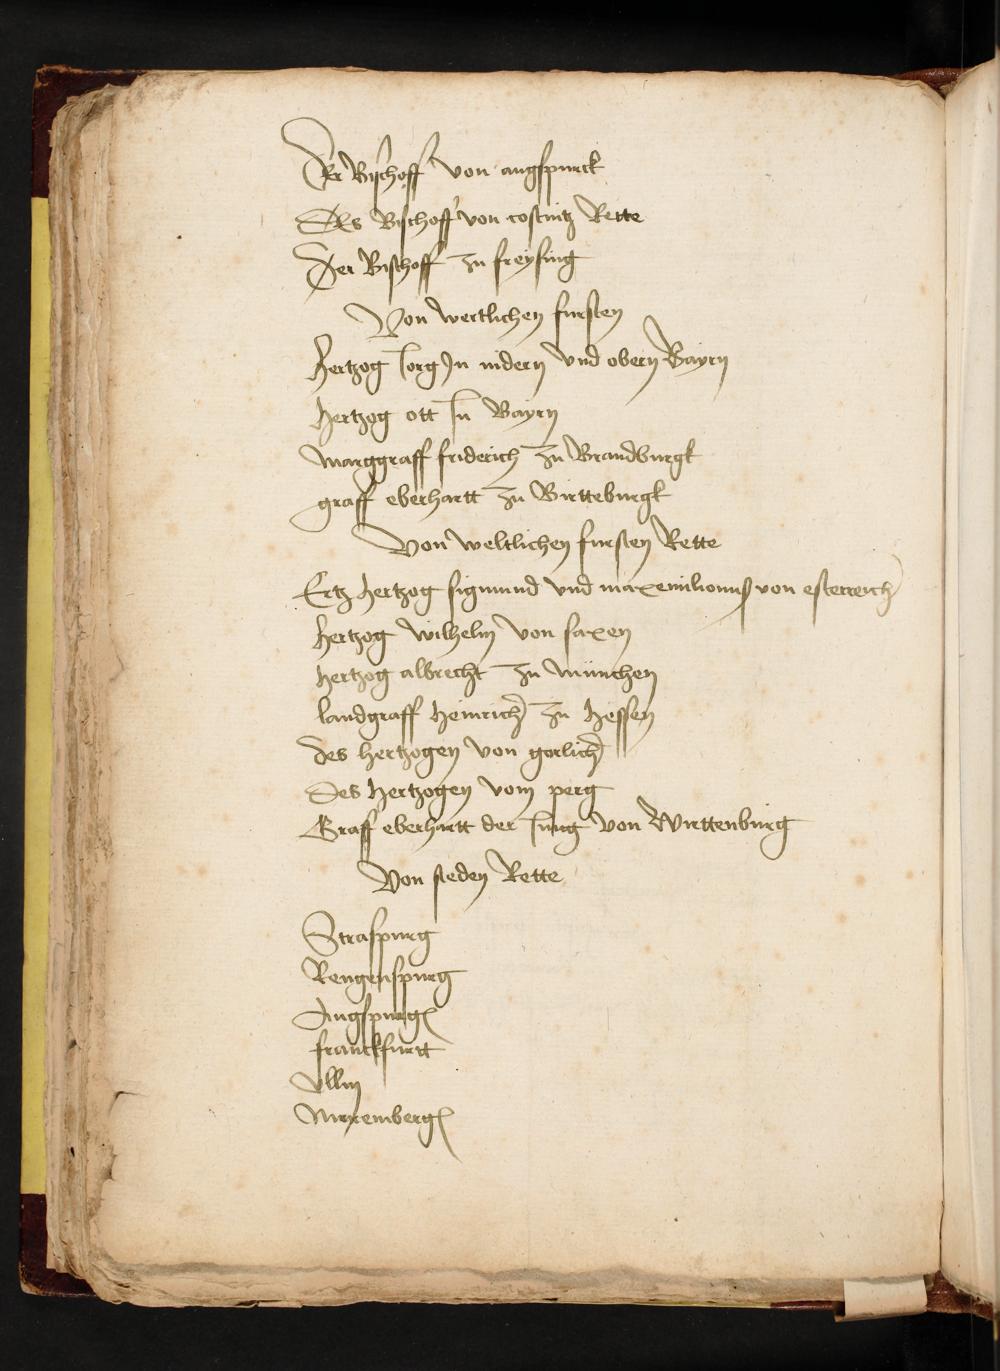 Der Bischoff von augspurck
Des Bischoff von costnitz Rette
Der Bischoff zu freysing
Von wertlichen fursten
hertzog Jorg Jn nidern vnd obern Bayrn
hertzog ott Jn Bayrn
Marggraff friderich zu Brandburgk
graff eberhartt zu Wirtteburgk
Von weltlichen fursten Rette
Ertz hertzog sigmund vnd maxemilionuß von esterreich
hertzog wilhelm von saxen
hertzog albrecht zu münchen
landgraff heinrich zu hessen
des hertzogen von gorlich
Des hertzogen vom perg
Graff eberhartt der Jung von Wirttenburg
Von steden Rette
Straspurg
Rengenspurg
Augspurg
franckfurtt
Vllm
Nuremberg